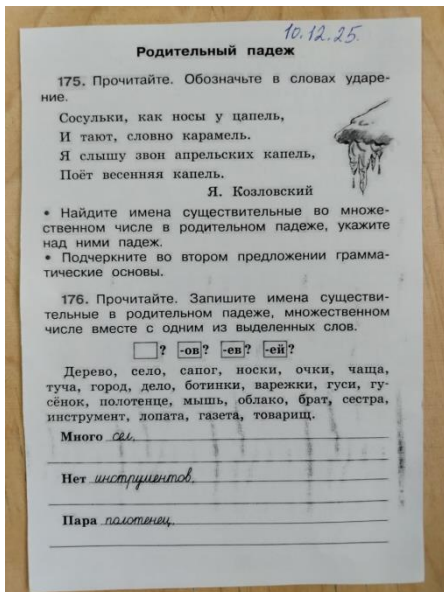 10.12.25.
Родительный падеж
175. Прочитайте. Обозначьте в словах ударе-
ние.
Сосульки, как носы у цапель,
И тают, словно карамель.
Я слышу звон апрельских капель,
Поёт весенняя капель.
Я. Козловский
• Найдите имена существительные во множе-
ственном числе в родительном падеже, укажите
над ними падеж.
• Подчеркните во втором предложении грамма-
тические основы.
176. Прочитайте. Запишите имена существи-
тельные в родительном падеже, множественном
числе вместе с одним из выделенных слов.
? -ов? -ев? -ей?
Дерево, село, сапог, носки, очки, чаща,
туча, город, дело, ботинки, варежки, гуси, гу-
сёнок, полотенце, мышь, облако, брат, сестра,
инструмент, лопата, газета, товарищ.
Много сел,
Нет инструментов,
Пара полотенец